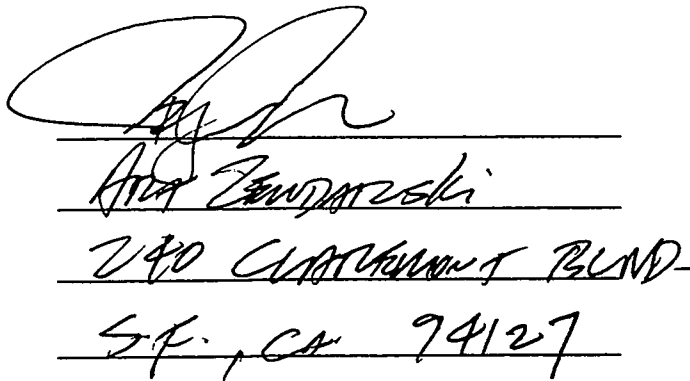 Art Zendarski
240 Claremont Blvd.
S.F., CA 94127